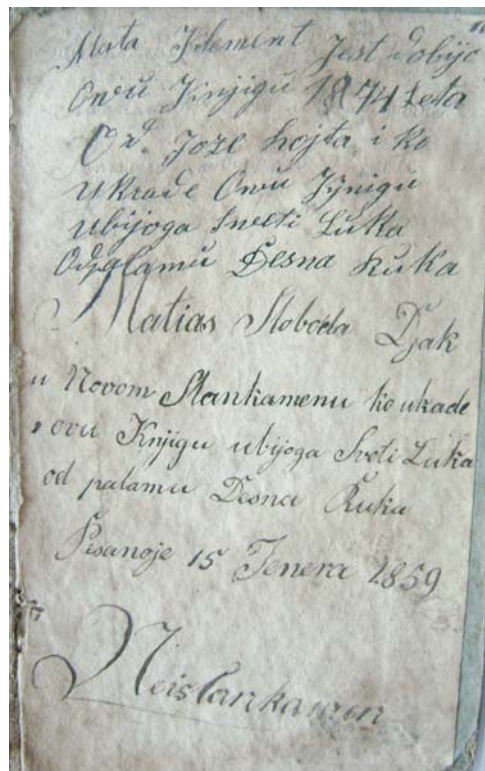 Mata Klement Jest Dobijo
Owu Knjigu 1874 Leta
Od. Joze hojta i ko
ukrade Owu Kjnigu
ubijoga Sweti Luka
Odpalamu Desna Ruka
Matias Sloboda Djak
u Novom Slankamenu ko ukade
ovu Knjigu ubijoga Sveti Luka
od palamu Desna Ruka
Pisanoje 15 Jenera 1859
Neislankamen